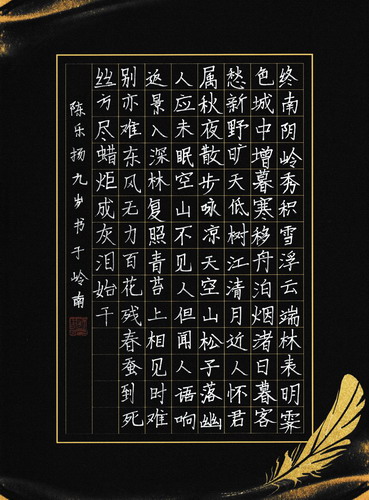 终南阴岭秀积雪浮云端林表明霁
色城中增暮寒移舟泊烟渚日暮客
愁新野旷天低树江清月近人怀君
属秋夜散步咏凉天空山松子落幽
人应未眠空山不见人但闻人语响
返景入深林复照青苔上相见时难
别亦难东风无力百花残春蚕到死
丝方尽蜡炬成灰泪始干
陈乐扬九岁书于岭南